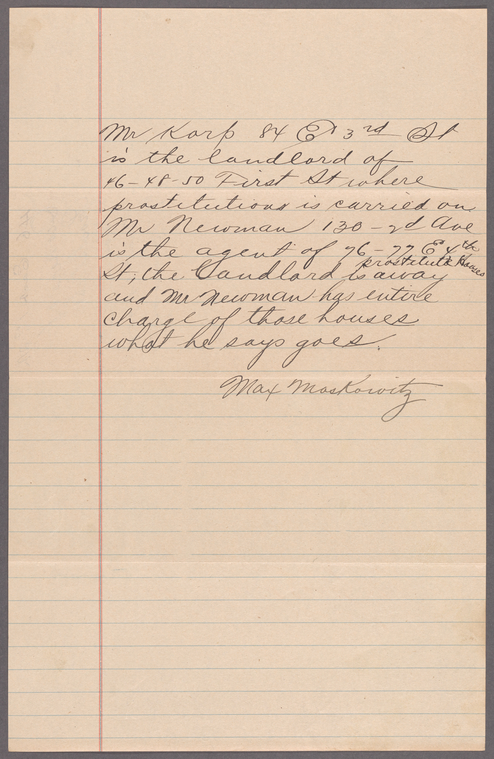 Mr Karp 84 E 3rd St
is the landlord of
46-48-50 First St where
prostitutions is carried on
Mr Newman 130-2d Ave
is the agent of 76-77 E 4th
prostitute houses
St, the Landlord is away
and Mr Newman has entire
charge of those houses
what he says goes.
Max Moskowitz